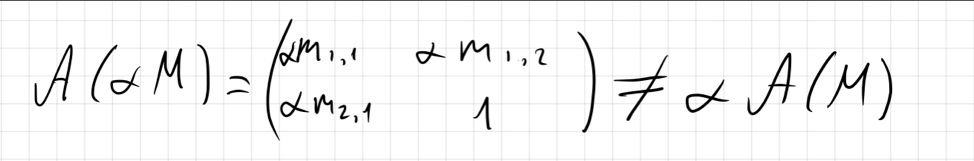 A(αM) = (αm₁,₁ αm₁,₂
αm₂,₁ 1) ≠ αA(M)